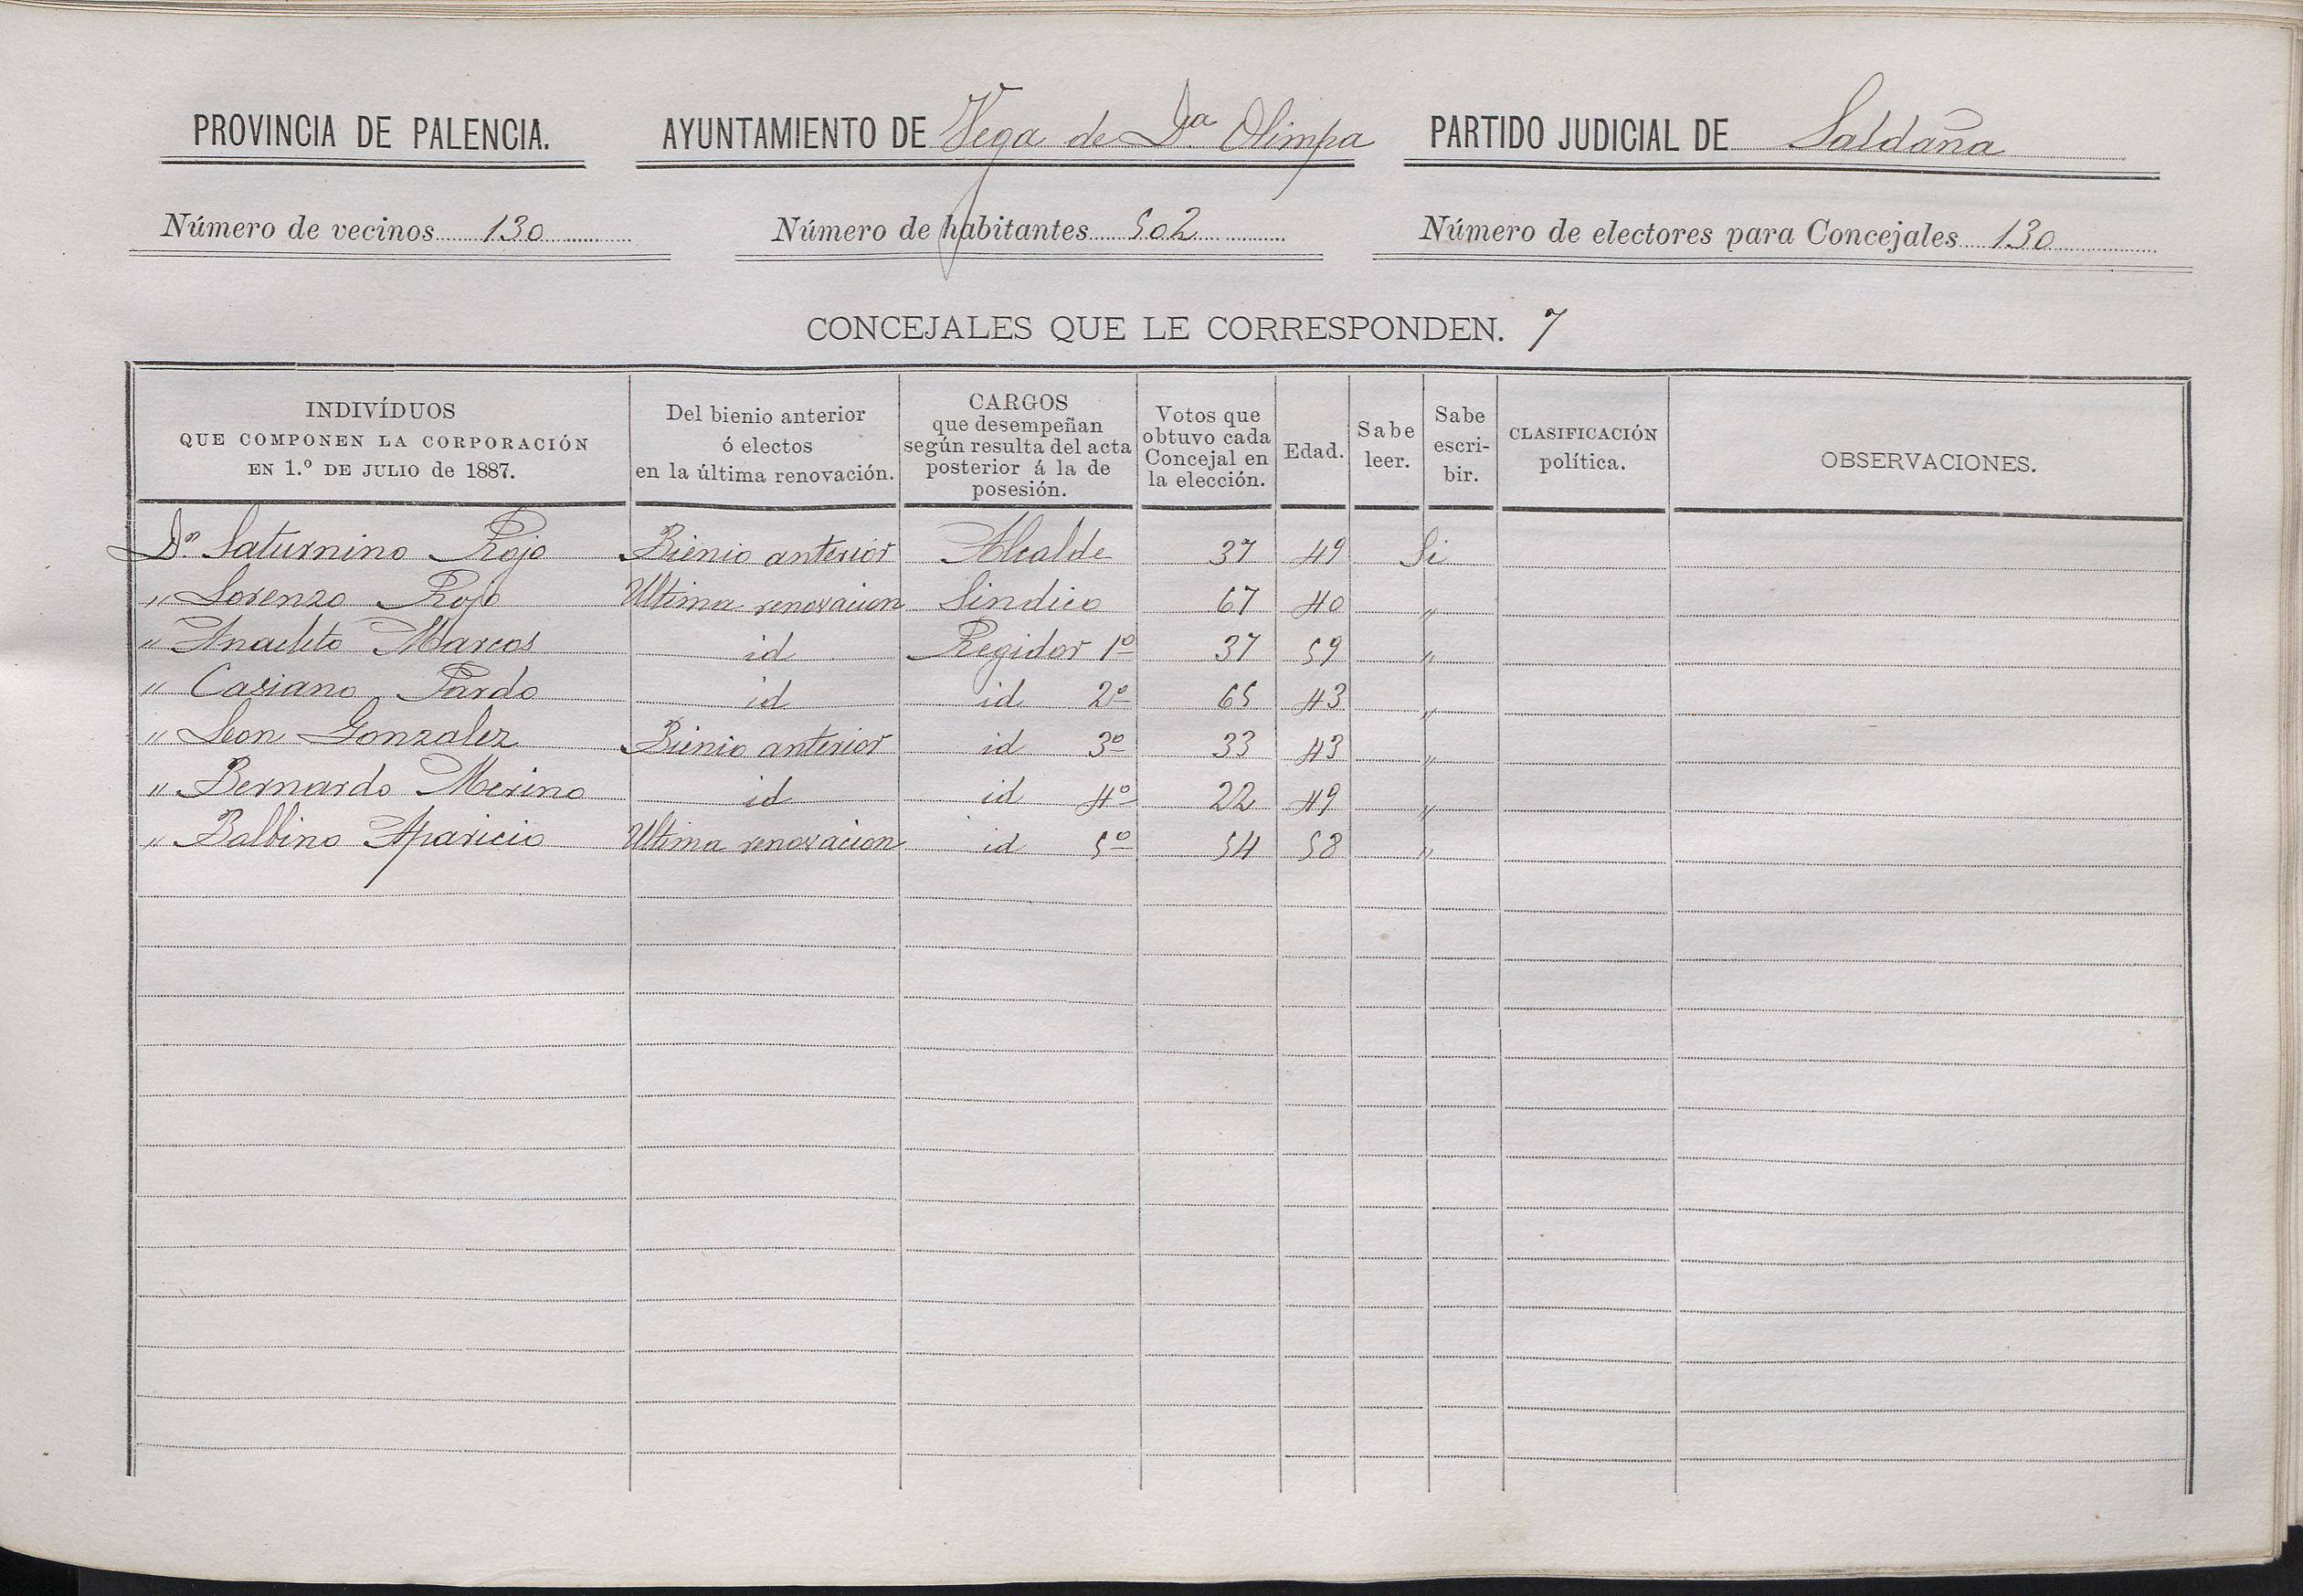 PROVINCIA DE PALENCIA. AYUNTAMIENTO DE Vega de Dña Olimpa PARTIDO JUDICIAL DE Saldaña
Número de vecinos 130 Número de habitantes 502 Número de electores para Concejales 130
CONCEJALES QUE LE CORRESPONDEN. 7
INDIVÍDUOS
QUE COMPONEN LA CORPORACIÓN
EN 1.º DE JULIO de 1887.
Del bienio anterior
ó electos
en la última renovación.
CARGOS
que desempeñan
según resulta del acta
posterior á la de
posesión.
Votos que
obtuvo cada
Concejal en
la elección.
Edad.
Sabe
leer.
Sabe
escri-
bir.
CLASIFICACIÓN
política.
OBSERVACIONES.
Dn Saturnino Rojo Bienio anterior Alcalde 37 49 Si
" Lorenzo Rojo Ultima renovacion Sindico 67 40 "
" Anacleto Marcos id Regidor 1º 37 59 "
" Casiano Pardo id id 2º 65 43 "
" Leon Gonzalez Bienio anterior id 3º 33 43 "
" Bernardo Merino id id 4º 22 49 "
" Balbino Aparicio Ultima renovacion id 5º 54 58 "